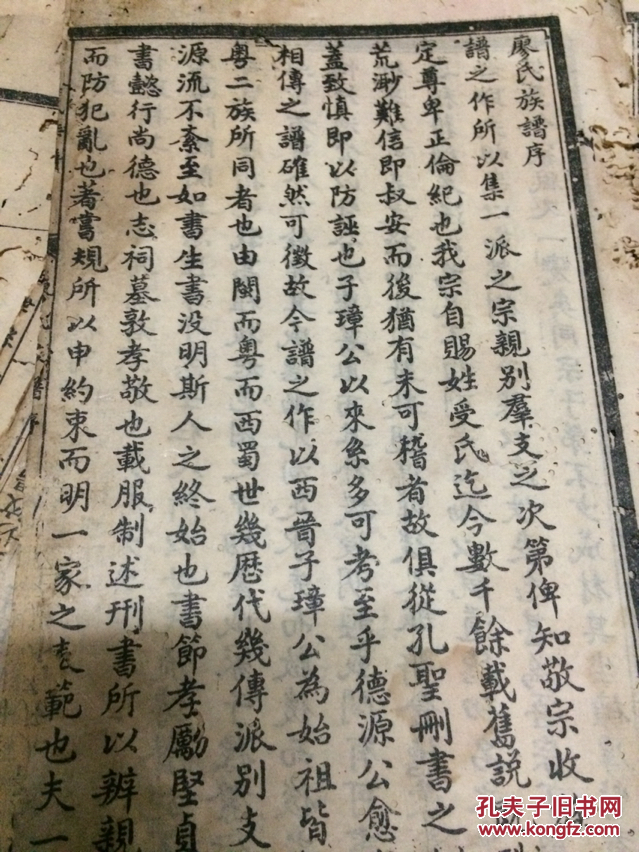 廖氏族譜序
譜之作所以集一派之宗親別羣支之次第俾知敬宗收
定尊卑正倫紀也我宗自賜姓受氏迄今數千餘載舊說
荒渺難信即叔安而後猶有未可稽者故俱從孔聖刪書之
蓋致慎即以防誣也子璋公以來系多可考至乎德源公愈
相傳之譜確然可徵故今譜之作以西晉子璋公為始祖皆
粵二族所同者也由閩而粵而西蜀世幾歷代幾傳派別支
源流不紊至如書生書没明斯人之終始也書節孝勵堅貞
書懿行尚德也志祠墓敦孝敬也載服制述刑書所以辨親
而防犯亂也著嘗規所以申約束而明一家之範也夫一
孔夫子旧书网
www.kongfz.com